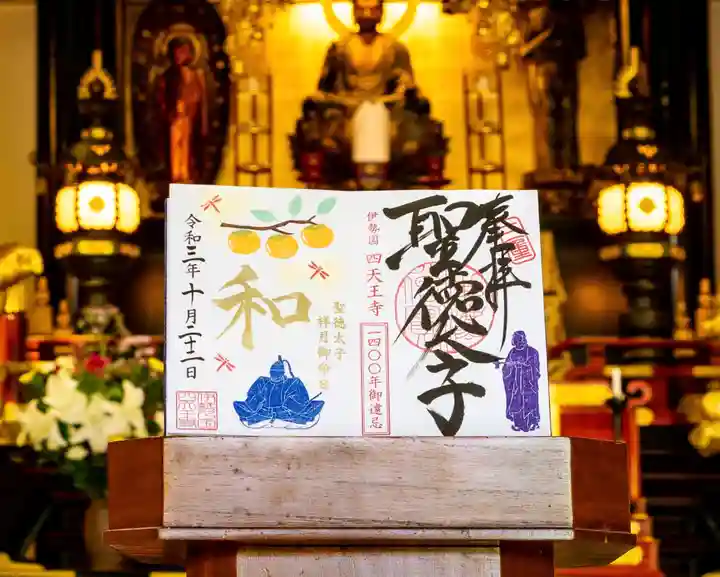 奉拝
聖徳太子
伊勢國 四天王寺
一四〇〇年御遠忌
聖徳太子
祥月御命日
和
令和三年十月二十二日